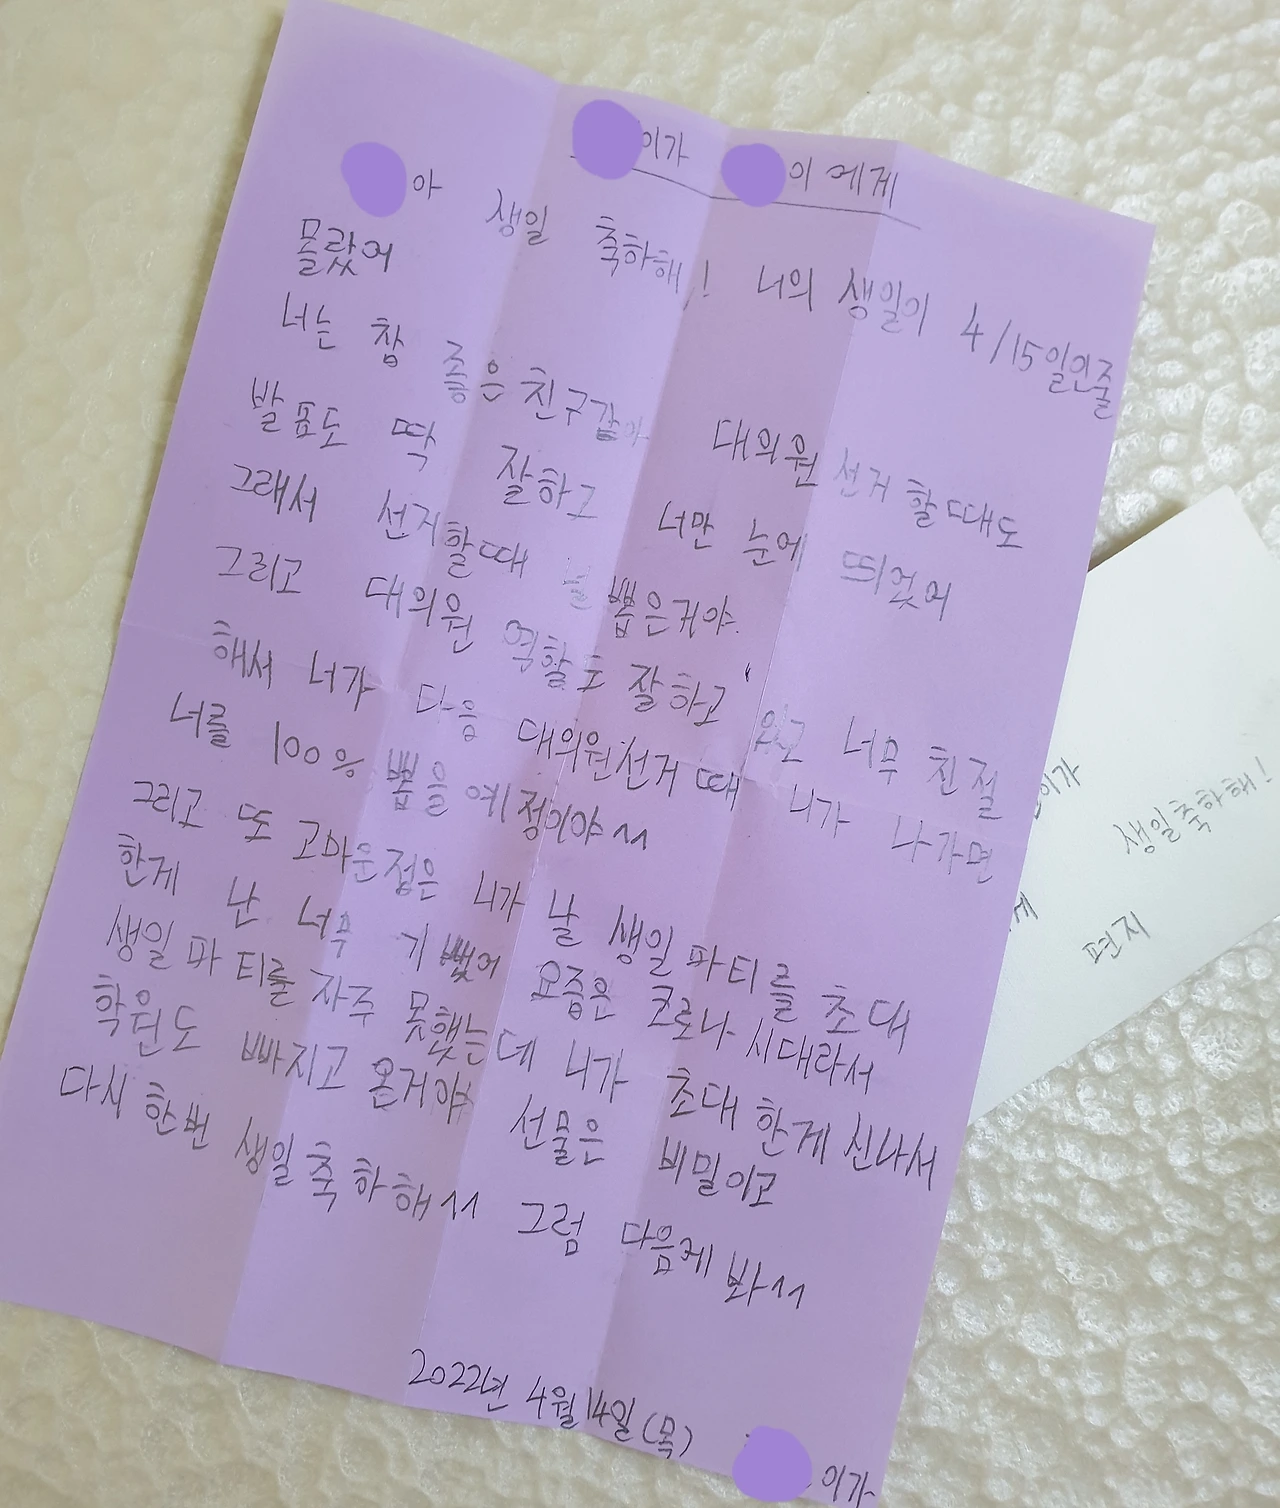 이가 이에게
아 생일 축하해! 너의 생일이 4/15일인줄
몰랐어
너는 참 좋은 친구같아 대의원 선거 할때도
발표도 딱 잘하고 너만 눈에 띄었어
그래서 선거할때 널 뽑은거야.
그리고 대의원 역할도 잘하고 있고 너무 친절
해서 너가 다음 대의원선거 때 니가 나가면
너를 100% 뽑을 예정이야^^
그리고 또 고마운점은 니가 날 생일파티를 초대
한게 난 너무 기뻤어 요즘은 코로나 시대라서
생일파티를 자주 못했는데 니가 초대 한게 신나서
학원도 빠지고 온거야 선물은 비밀이고
다시한번 생일축하해^^ 그럼 다음게 봐^^
2022년 4월 14일(목)
이가
이가
생일축하해!
게
편지